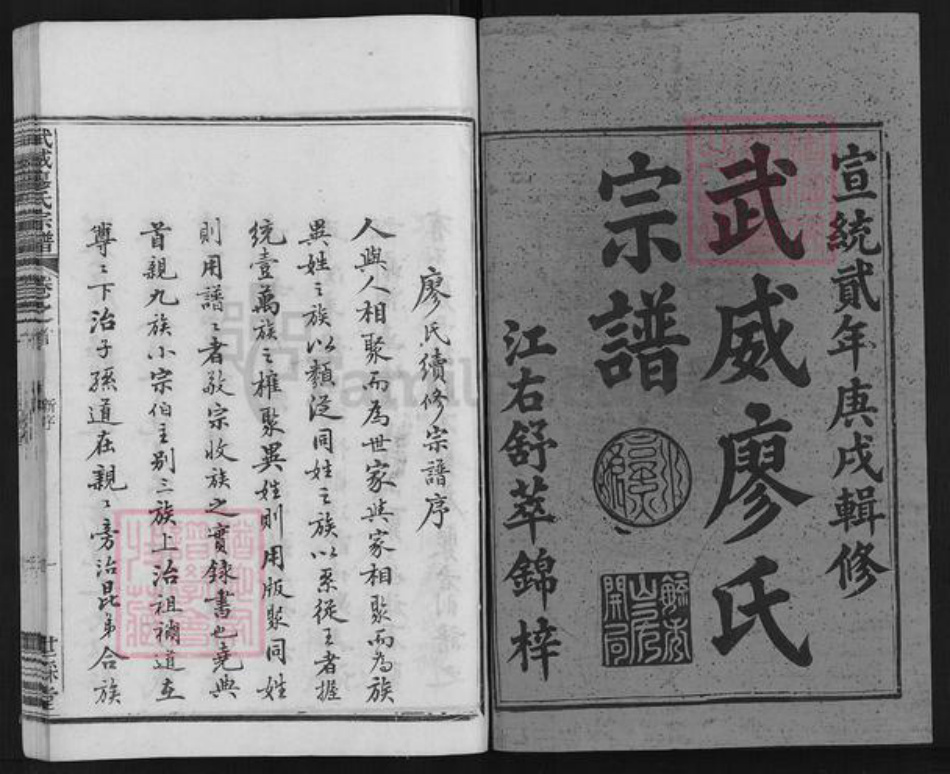 宣統貳年庚戌輯修
武威廖氏
宗譜
江右舒萃錦梓
廖氏續修宗譜序
人與人相聚而為世家與家相聚而為族
異姓之族以類泛同姓之族以系從王者握
統壹萬族之權聚異姓則用版聚同姓
則用譜〻者敬宗收族之實錄書也堯典
首親九族小宗伯主别三族上治祖禰道在
尊〻下治子孫道在親〻旁治昆弟合族
武威廖氏宗譜
卷之首
新序
一
世綵堂